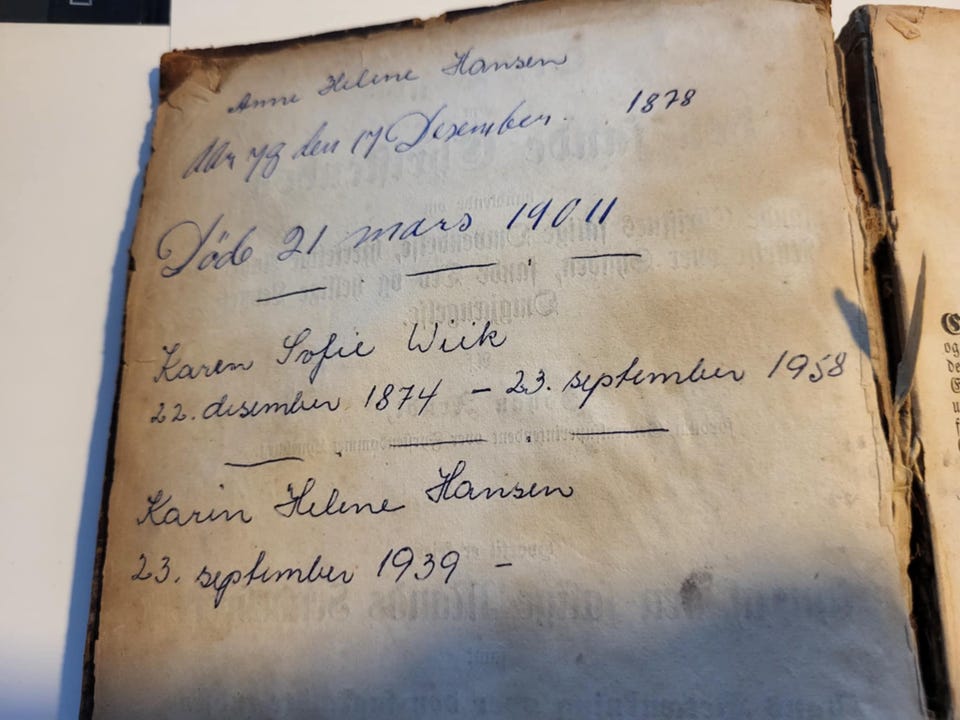 Anne Helene Hansen
79 den 17 Desember. 1878
Död 21 mars
Karen Sofie Wiik
22. desember 1874 – 23. september 1958
Karin Helene Hansen
23. september 1939 –